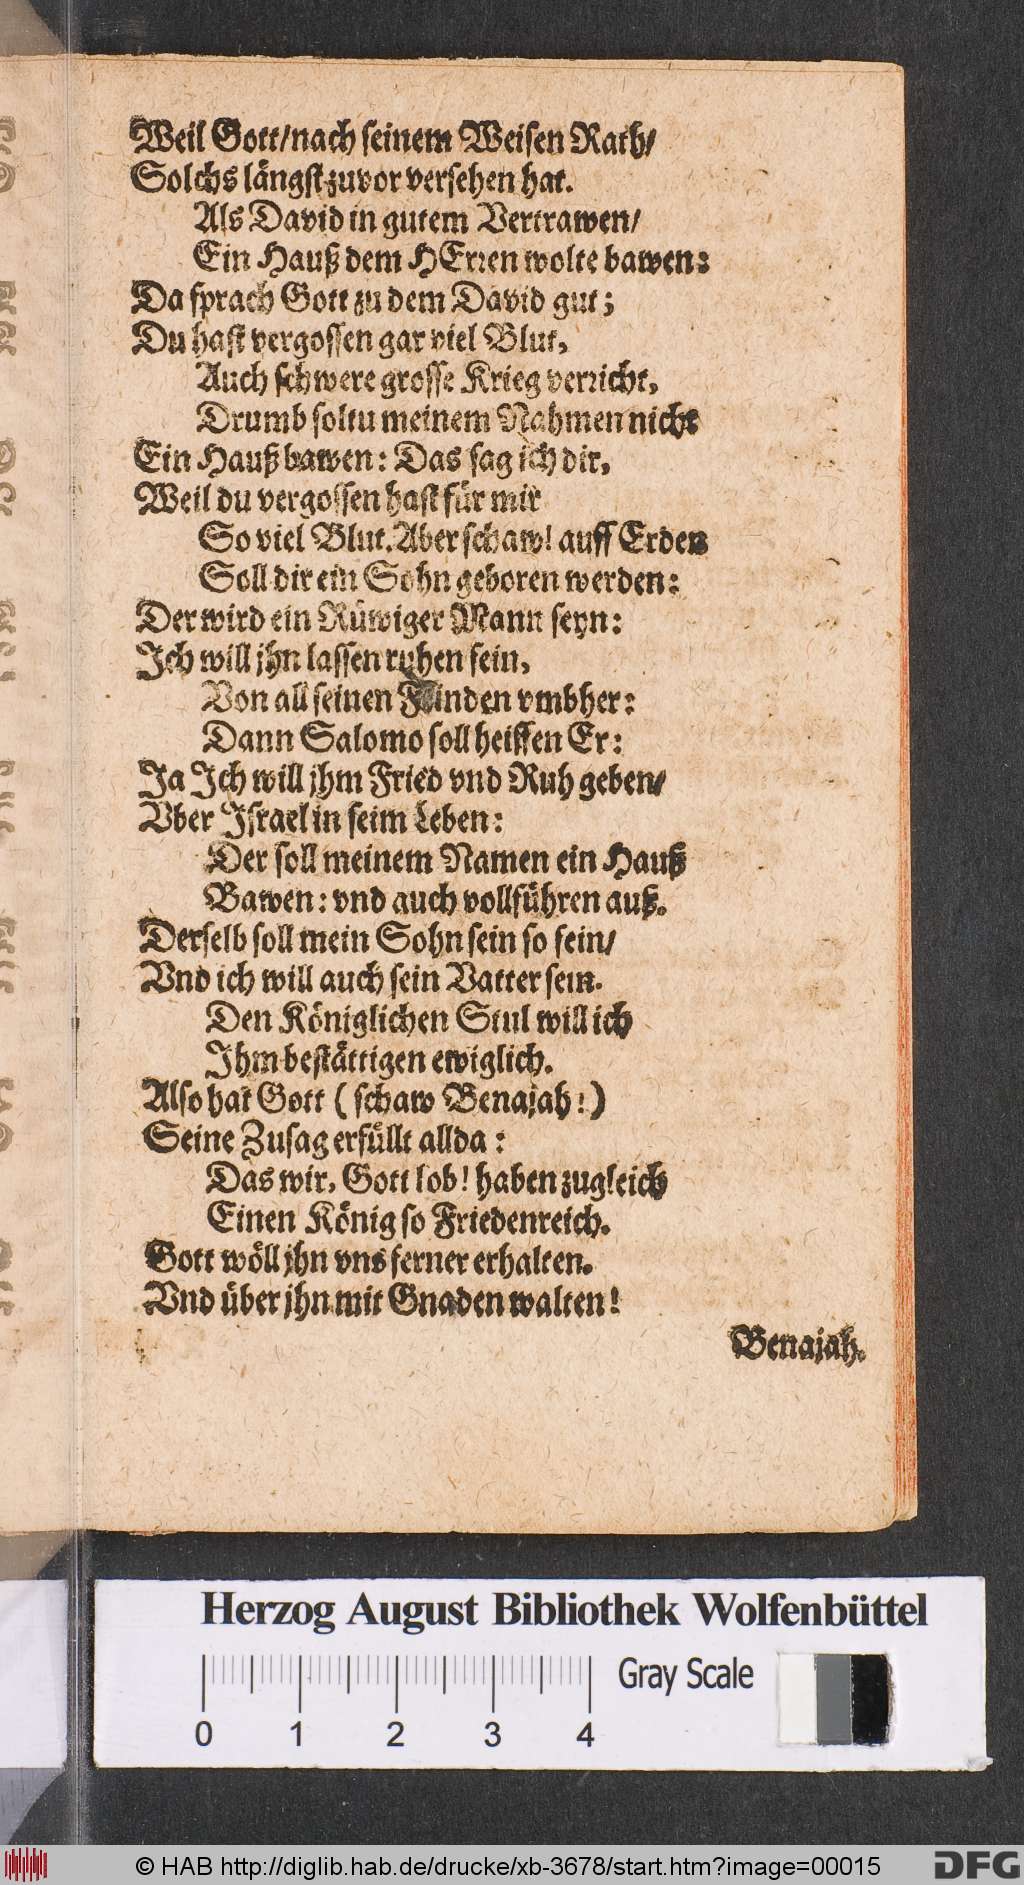 Weil Gott/nach seinem Weisen Rath/
Solchs längst zuvor versehen hat.
Als David in gutem Vertrawen/
Ein Hauß dem HErren wolte bawen:
Da sprach Gott zu dem David gut;
Du hast vergossen gar viel Blut,
Auch schwere grosse Krieg verricht,
Drumb soltu meinem Nahmen nicht
Ein Hauß bawen: Das sag ich dir,
Weil du vergossen hast für mir
So viel Blut. Aber schaw! auff Erden
Soll dir ein Sohn geboren werden:
Der wird ein Rüwiger Mann seyn:
Ich will jhn lassen ruhen fein,
Von all seinen Feinden vmbher:
Dann Salomo soll heissen Er:
Ja Ich will jhm Fried vnd Ruh geben/
Vber Israel in seim Leben:
Der soll meinem Namen ein Hauß
Bawen: vnd auch vollführen auß.
Derselb soll mein Sohn sein so fein/
Vnd ich will auch sein Vatter sein.
Den Königlichen Stul will ich
Ihm bestättigen ewiglich.
Also hat Gott (schaw Benajah!)
Seine Zusag erfüllt allda:
Das wir, Gott lob! haben zugleich
Einen König so Friedenreich.
Gott wöll jhn vns ferner erhalten.
Vnd über jhn mit Gnaden walten!
Benajah.
Herzog August Bibliothek Wolfenbüttel
Gray Scale
0 1 2 3 4
© HAB http://diglib.hab.de/drucke/xb-3678/start.htm?image=00015
DFG